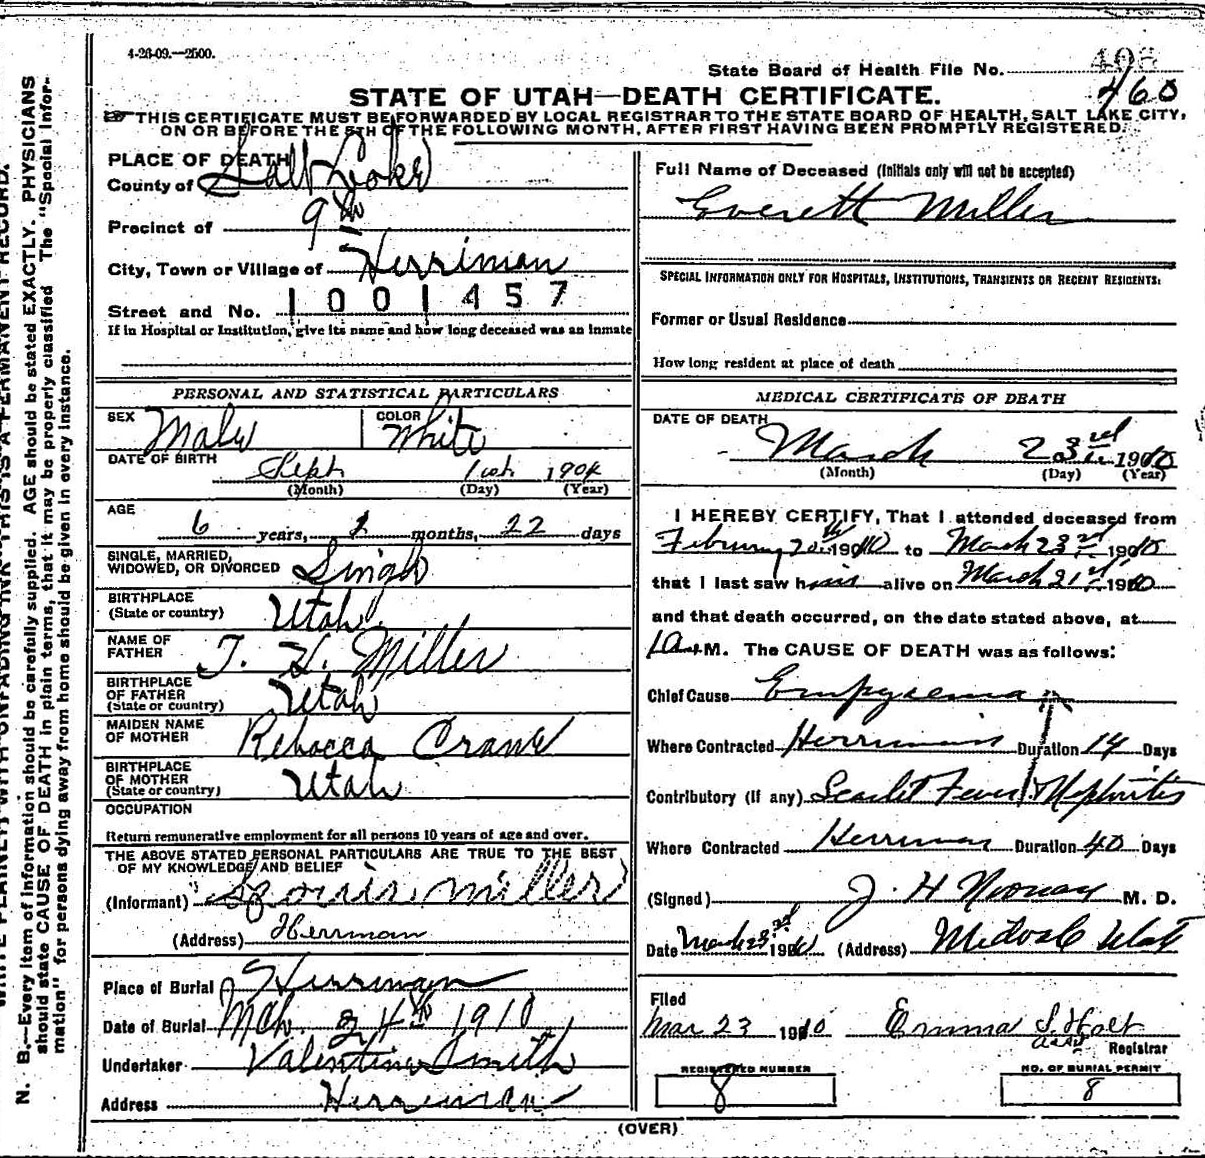 4-26-09.—2500.
State Board of Health File No. 406
460
STATE OF UTAH—DEATH CERTIFICATE.
THIS CERTIFICATE MUST BE FORWARDED BY LOCAL REGISTRAR TO THE STATE BOARD OF HEALTH, SALT LAKE CITY,
ON OR BEFORE THE 5TH OF THE FOLLOWING MONTH, AFTER FIRST HAVING BEEN PROMPTLY REGISTERED.
PLACE OF DEATH
County of Salt Lake
Precinct of 9th
City, Town or Village of Herriman
Street and No. 1001457
If in Hospital or Institution, give its name and how long deceased was an inmate
PERSONAL AND STATISTICAL PARTICULARS
SEX Male COLOR White
DATE OF BIRTH Sept. 1st. 1904
(Month) (Day) (Year)
AGE
6 years, months, 22 days
SINGLE, MARRIED,
WIDOWED, OR DIVORCED Single
BIRTHPLACE
(State or country) Utah
NAME OF
FATHER Miller
BIRTHPLACE
OF FATHER
(State or country) Utah
MAIDEN NAME
OF MOTHER Rebacca Crane
BIRTHPLACE
OF MOTHER
(State or country) Utah
OCCUPATION
Return remunerative employment for all persons 10 years of age and over.
THE ABOVE STATED PERSONAL PARTICULARS ARE TRUE TO THE BEST
OF MY KNOWLEDGE AND BELIEF
(Informant) Miller
(Address) Herriman
Place of Burial Herriman
Date of Burial Mch. 24th 1910
Undertaker Valentine Smith
Address Herriman
Full Name of Deceased (Initials only will not be accepted)
Everett Miller
SPECIAL INFORMATION ONLY FOR HOSPITALS, INSTITUTIONS, TRANSIENTS OR RECENT RESIDENTS:
Former or Usual Residence
How long resident at place of death
MEDICAL CERTIFICATE OF DEATH
DATE OF DEATH
March 23rd 1910
(Month) (Day) (Year)
I HEREBY CERTIFY, That I attended deceased from
February 20th 1910 to March 23rd 1910
that I last saw him alive on March 21st 1910
and that death occurred, on the date stated above, at
1 a. M. The CAUSE OF DEATH was as follows:
Chief Cause Empyaema
Where Contracted Herriman Duration 14 Days
Contributory (if any) Scarlet Fever Nephritis
Where Contracted Herriman Duration 40 Days
(Signed) J. H. Noonan M. D.
Date March 23rd 1910 (Address) Midvale Utah
Filed
Mar 23 1910 Emma S. Holt
Asst Registrar
REGISTERED NUMBER
8
NO. OF BURIAL PERMIT
8
(OVER)
N. B.—Every item of information should be carefully supplied. AGE should be stated EXACTLY. PHYSICIANS
should state CAUSE OF DEATH in plain terms, that it may be properly classified The "Special Infor-
mation" for persons dying away from home should be given in every instance.